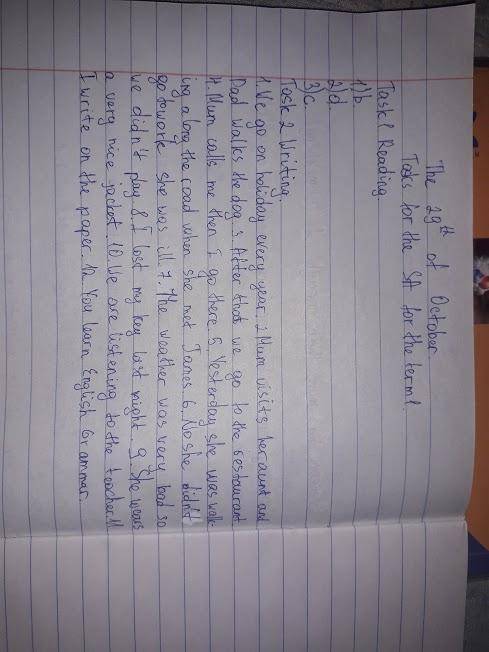 The 29th of October
Tasks for the SA for the term 1.
Task 1 Reading
1) b.
2) d
3) c.
Task 2 Writing
1. We go on holiday every year. 2 Mum visits her aunt and
Dad walks the dog 3 After that we go to the restaurant
4. Mum calls me then I go there 5 Yesterday she was walk-
ing along the road when she met James 6. No she didn't
go to work she was ill 7. The weather was very bad so
we didn't play 8. I lost my key last night. 9. She wears
a very nice jacket. 10 We are listening to the teacher 11
I write on the paper. 12. You learn English Grammar.